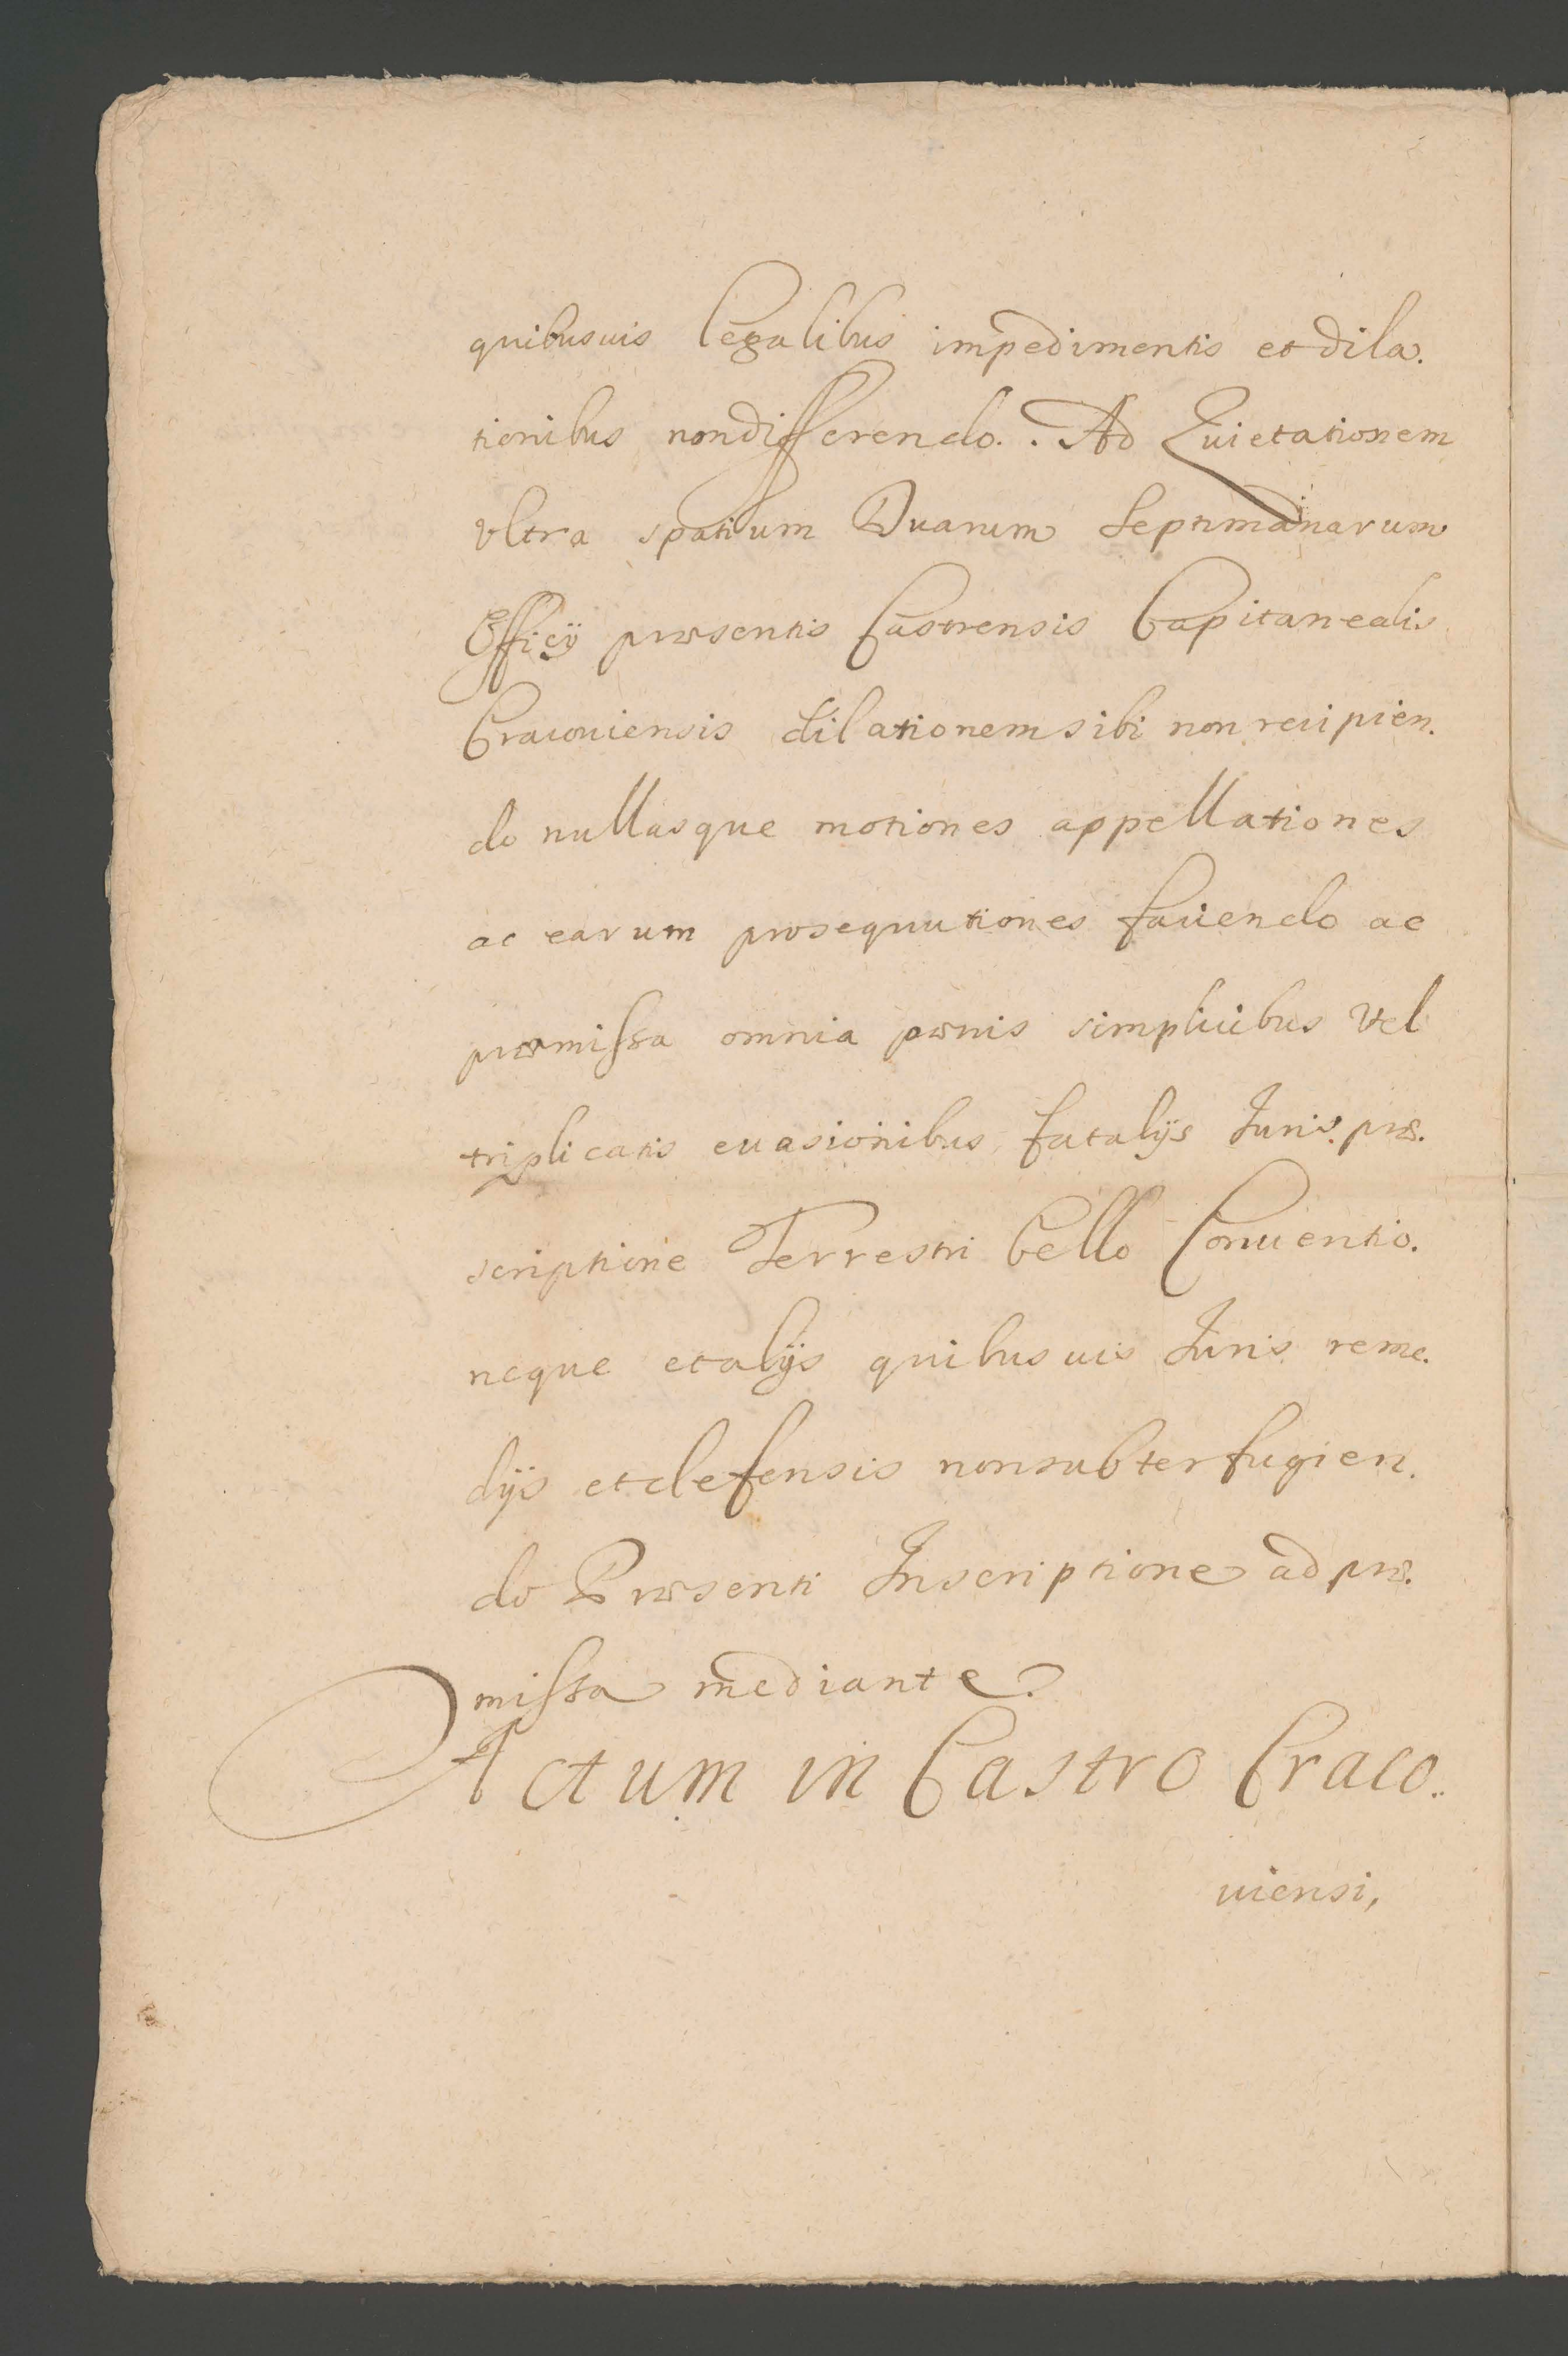 quibusuis legalibus impedimentis et dila.
tionibus non differendo. Ad Quietationem
vltra spatium Duarum Septimanarum
Officÿ præsentis Castrensis Capitanealis
Cracouiensis dilationem sibi non recipien.
do nullasque motiones appellationes
ac earum prosequutiones faciendo ac
præmissa omnia pœnis simplicibus vel
triplicatis euasionibus fatalÿs Iuris præ.
scriptione Terrestri bello Conuentio.
neque et alÿs quibusuis Iuris reme.
dÿs et defensis non subterfugien.
do Præsenti Inscriptione ad præ.
missa mediante.
Actum in Castro Craco.
uiensi,